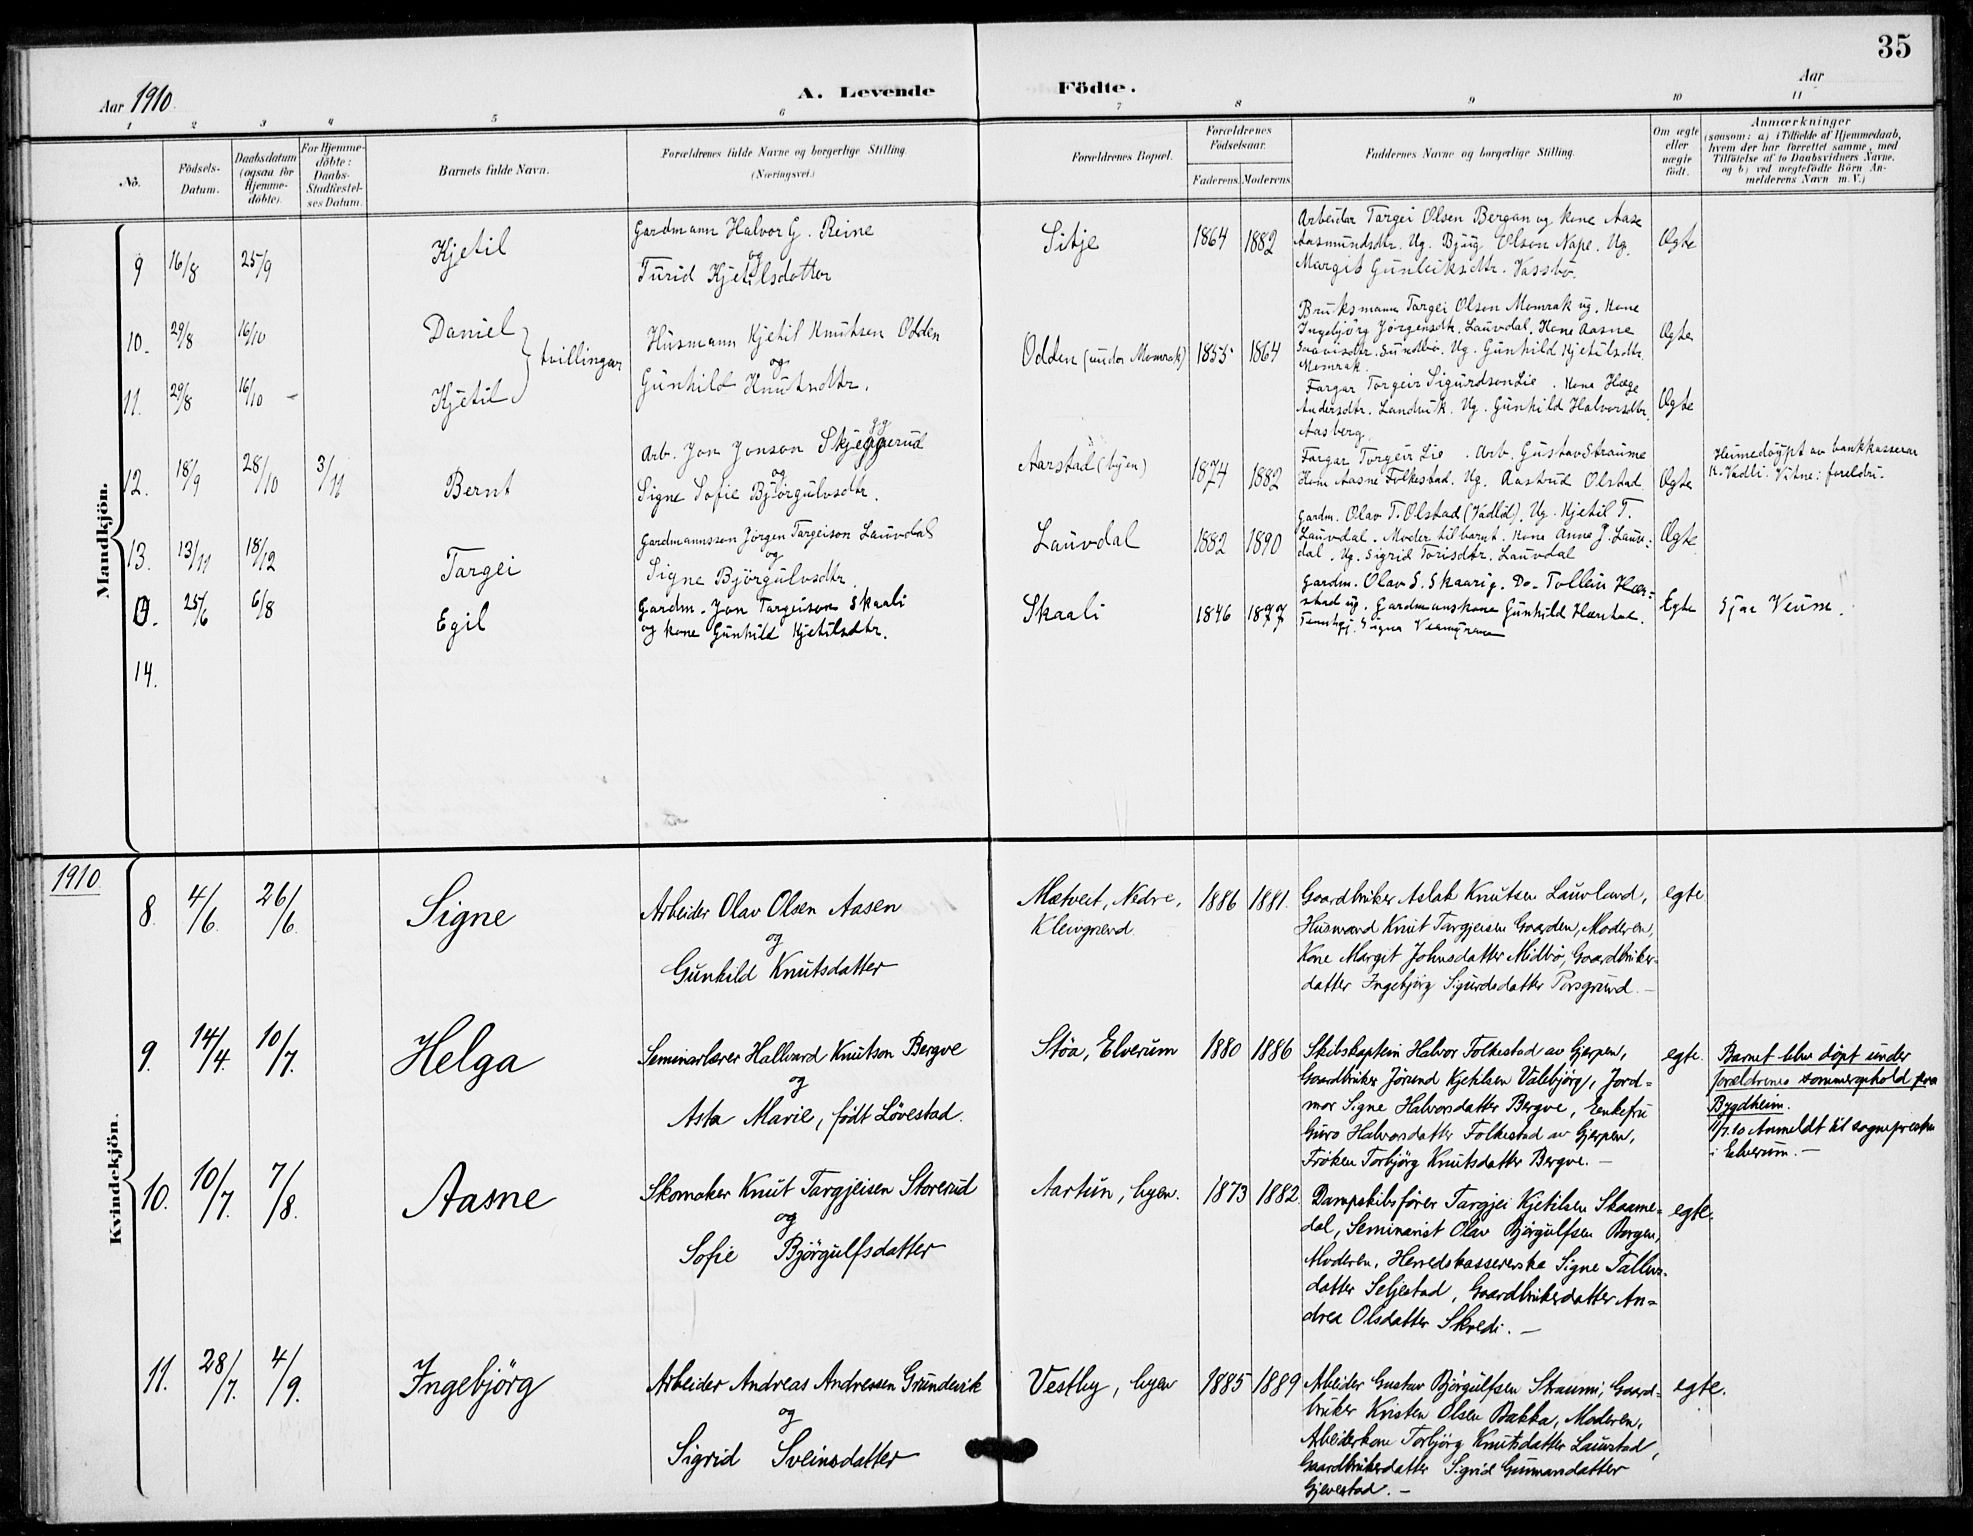 35
Aar 1910.
A. Levende Födte.
Aar
1 2 3 4 5 6 7 8 9 10 11
No.
Födsels-Datum.
Daabsdatum (ogsaa for Hjemme-döbte).
For Hjemme-döbte: Daabs-Stadfæstelses Datum.
Barnets fulde Navn.
Forældrenes fulde Navne og borgerlige Stilling.
(Næringsvei.)
Forældrenes Bopæl.
Forældrenes Födselsaar.
Faderens. Moderens.
Faddernes Navne og borgerlige Stilling.
Om ægte eller uægte födt.
Anmærkninger
(saasom: a) i Tilfælde af Hjemmedaab,
hvem der har forrettet samme, med
Tilföielse af to Daabsvidners Navne.
og b) ved uægtefödte Börn An-
melderens Navn m. V.)
Mandkjön.
9 16/8 25/9 Kjetil
Gardmann Halvor G. Reine
og
Turid Kjetilsdotter
Sitje 1864 1882
Arbeidar Targei Olsen Bergan og kone Aase
Aasmundsdtr. Ug. Bjug Olson Nape. Ug.
Margit Gunleiksdtr. Vassbø.
Ægte
10. 29/8 16/10 Daniel
11. 29/8 16/10 – Kjetil
tvillingar
Husmann Kjetil Knutsen Odden
og
Gunhild Knutsdtr.
Odden (under Momrak) 1855 1864
Bruksmann Targei Olson Momrak og kone
Ingebjörg Jörgensdtr. Lauvdal. Kone Aasne
Sundbö. Ug. Gunhild Kjetilsdtr.
Momrak.
Ægte
Fargar Torgeir Sigurdson Lie. Kone Hæge
Andersdtr. Landvik. Ug. Gunhild Halvorsdtr.
Aasberg.
Ægte
12. 18/9 28/10 3/11 Bernt
Arb. Jon Jonson Skjeggerud
gg
og
Signe Sofie Björgulvsdtr.
Aarstad (byen) 1874 1882
Fargar Torgeir Lie. Arb. Gustav Straume
Kone Aasne Folkestad. Ug. Aastrud Olstad
Ægte
Heimedöypt av bankkasserar
K. Vadli. Vitne: foreldri.
13. 13/11 18/12 Targei
Gardmannsson Jörgen Targeison Lauvdal
og
Signe Björgulvsdtr.
Lauvdal 1882 1890
Gardm. Olav T. Olstad (Vadlid). Ug. Kjetil T.
Lauvdal. Moder til barnt. Kone Anne J. Lauv-
dal. Ug. Sigrid Torisdtr. Lauvdal
Ægte
25/6 6/8 Egil
Gardm. Jon Targeison Skaali
og kone Gunhild Kjetilsdtr.
Skaali 1846 1877
Gardm. Olav S. Skaari og. Do. Tollein Hær-
stad og. Gardmanskone Gunhild Hærstad.
Signe
Egte
Sjaa Veum.
14.
1910.
Kvindekjön.
8. 4/6. 26/6. Signe
Arbeider Olav Olsen Aasen
og
Gunhild Knutsdatter
Mætveit, Nedre,
Kleivgrend
1886 1881.
Gaardbruker Aslak Knutsen Lauvland,
Husmand Knut Targjeisen Gaarden, Moderen,
Kone Margit Johnsdatter Midbö, Gaardbruker-
datter Ingebjörg Sigurdsdatter Porsgrund. –
egte
9. 14/4. 10/7. Helga
Seminarlærer Hallvard Knutson Bergve
og
Asta Marie, født Løvestad.
Støa, Elverum 1880 1886
Skibskaptein Halvor Folkestad av Gjerpen,
Gaardbruker Jörund Kjetilsen Valebjörg, Jord-
mor Signe Halvorsdatter Bergve, Enkefru
Guro Halvorsdatter Folkestad av Gjerpen,
Frøken Torbjörg Knutsdatter Bergve. –
egte.
Barnet blev döpt under
forældrenes sommerophold paa
Bygdheim.
11/7.10 Anmeldt til sognepresten
i Elverum. –
10. 10/7. 7/8. Aasne
Skomaker Knut Targjeisen Storerud
og
Sofie Björgulfsdatter
Aartun, byen. 1873 1882
Dampskibsfører Targjei Kjetilsen Skaame-
dal, Seminarist Olav Björgulfsen Borgen,
Moderen, Herredskassererska Signe Talleiv-
datter Seljestad, Gaardbrukerdatter An-
drea Olsdatter Skredi. –
egte.
11. 28/7. 4/9. Ingebjörg
Arbeider Andreas Andresen Grundevik
og
Sigrid Sveinsdatter
Vestby, byen 1885 1889
Arbeider Gustav Björgulfsen Straumi, Gaard-
bruker Kristen Olsen Bakka, Moderen,
Arbeiderkone Torbjörg Knutsdatter Laustad,
Gaardbrukerdatter Sigrid Gunnarsdatter
Gjevestad. –
egte.